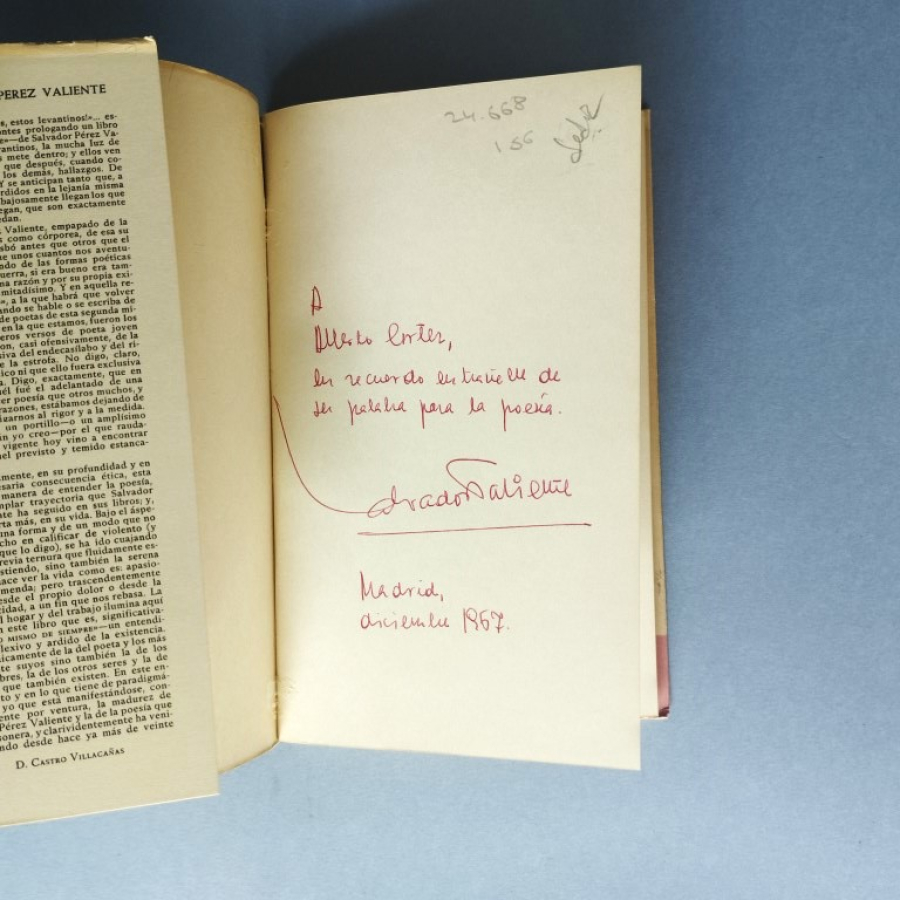 PEREZ VALIENTE
s, estos levantinos!»... es-
ontes prologando un libro
e»—de Salvador Pérez Va-
rantinos, la mucha luz de
s mete dentro; y ellos ven
que después, cuando co-
los demás, hallazgos. De
Y se anticipan tanto que, a
erdidos en la lejanía misma
abajosamente llegan los que
legan, que son exactamente
edan.
z Valiente, empapado de la
s como córporea, de esa su
sbó antes que otros que el
e unos cuantos nos aventu-
ado de las formas poéticas
uerra, si era bueno era tam-
na razón y por su propia exi-
mitadísimo. Y en aquella re-
», a la que habrá que volver
ando se hable o se escriba de
de poetas de esta segunda mi-
en la que estamos, fueron los
eros versos de poeta joven
on, casi ofensivamente, de la
siva del endecasílabo y del ri-
e la estrofa. No digo, claro,
ico ni que ello fuera exclusiva
a. Digo, exactamente, que en
él fué el adelantado de una
er poesía que otros muchos, y
razones, estábamos dejando de
izarnos al rigor y a la medida.
un portillo—o un amplísimo
in yo creo—por el que rauda-
vigente hoy vino a encontrar
nel previsto y temido estanca-
amente, en su profundidad y en
esaria consecuencia ética, esta
manera de entender la poesía,
mplar trayectoria que Salvador
te ha seguido en sus libros; y,
rta más, en su vida. Bajo el áspe-
una forma y de un modo que no
cho en calificar de violento (y
que lo digo), se ha ido cuajando
revia ternura que fluidamente es-
istiendo, sino también la serena
hace ver la vida como es: apasio-
menda; pero trascendentemente
desde el propio dolor o desde la
cidad, a un fin que nos rebasa. La
l hogar y del trabajo ilumina aquí
n este libro que es, significativa-
O MISMO DE SIEMPRE»—un entendi-
flexivo y ardido de la existencia.
nicamente de la del poeta y los más
te suyos sino también la de los
bres, la de los otros seres y la de
que también existen. En este en-
to y en lo que tiene de paradigmá-
yo que está manifestándose, con-
ente por ventura, la madurez de
Pérez Valiente y la de la poesía que
sonera, y clarividentemente ha veni-
ndo desde hace ya más de veinte
D. CASTRO VILLACAÑAS
24.668
156
A
Alberto Cortez,
en recuerdo entrañable de
ser palabra para la poesía.
Salvador Valiente
Madrid,
diciembre 1967.